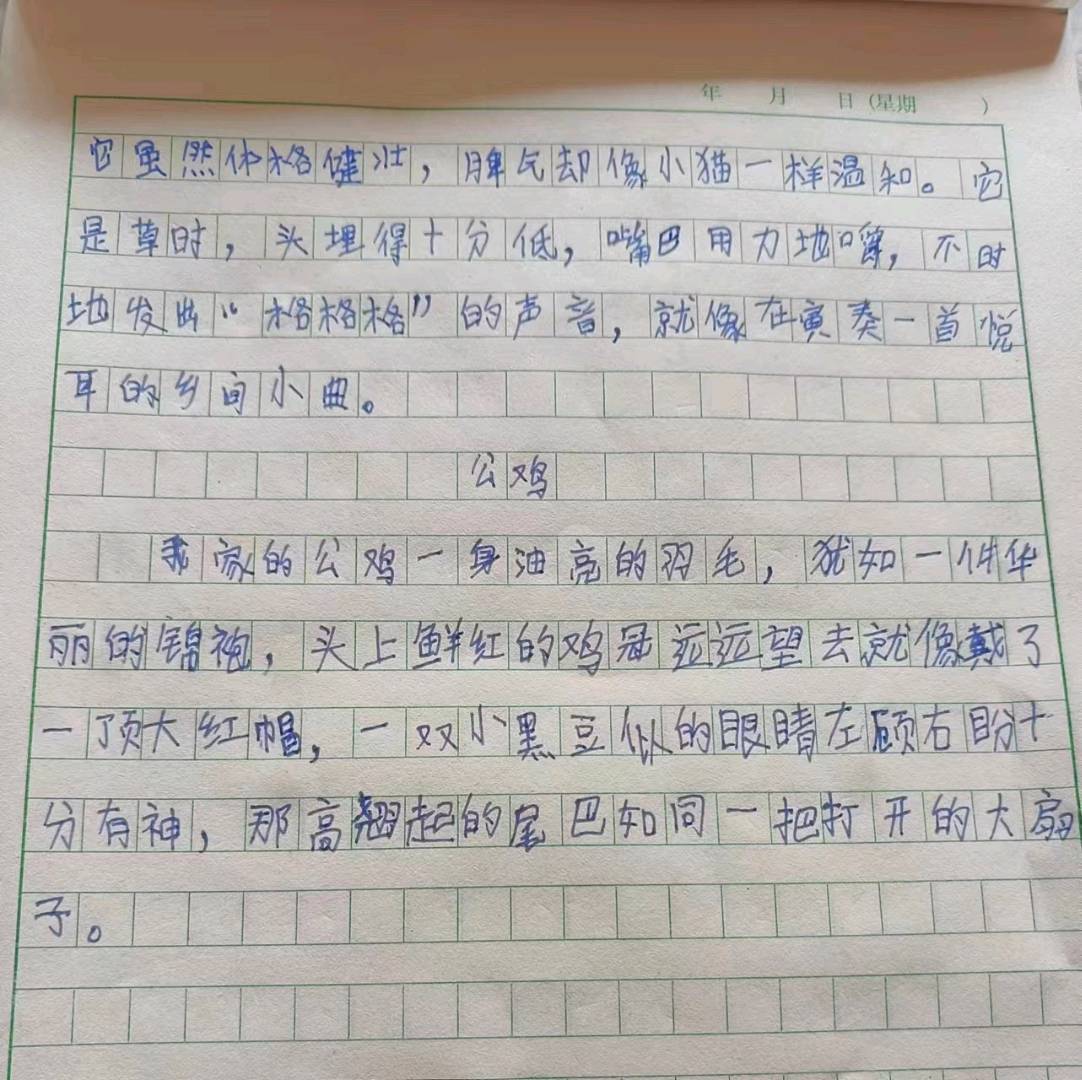 年 月 日(星期 )
它虽然体格健壮，脾气却像小猫一样温和。它
是草时，头埋得十分低，嘴巴用力地嚼，不时
地发出“格格格”的声音，就像在演奏一首悦
耳的乡间小曲。
公鸡
我家的公鸡一身油亮的羽毛，犹如一件华
丽的锦袍，头上鲜红的鸡冠远远望去就像戴了
一顶大红帽，一双小黑豆似的眼睛左顾右盼十
分有神，那高翘起的尾巴如同一把打开的大扇
子。